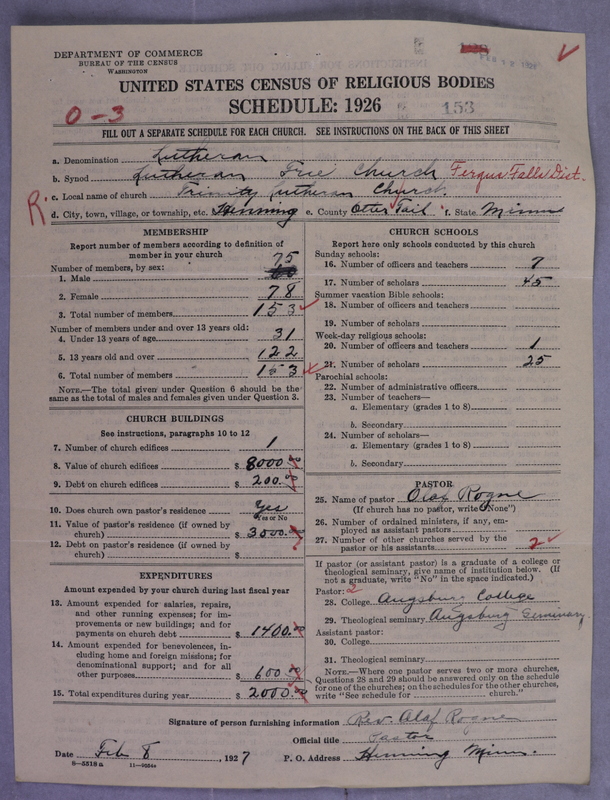 DEPARTMENT OF COMMERCE
BUREAU OF THE CENSUS
WASHINGTON
UNITED STATES CENSUS OF RELIGIOUS BODIES
SCHEDULE: 1926
0-3
153
FILL OUT A SEPARATE SCHEDULE FOR EACH CHURCH. SEE INSTRUCTIONS ON THE BACK OF THIS SHEET
a. Denomination Lutheran
b. Synod Lutheran Free Church Fergus Falls Dist.
R. c. Local name of church Trinity Lutheran Church
d. City, town, village, or township, etc. Henning e. County Otter Tail f. State Minn
MEMBERSHIP
Report number of members according to definition of
member in your church
Number of members, by sex:
1. Male 75
2. Female 78
3. Total number of members 153
Number of members under and over 13 years old:
4. Under 13 years of age 31
5. 13 years old and over 122
6. Total number of members 153
NOTE.—The total given under Question 6 should be the
same as the total of males and females given under Question 3.
CHURCH BUILDINGS
See instructions, paragraphs 10 to 12
7. Number of church edifices 1
8. Value of church edifices $ 8000.00
9. Debt on church edifices $ 200.00
10. Does church own pastor's residence Yes
Yes or No
11. Value of pastor's residence (if owned by
church) $ 3500.00
12. Debt on pastor's residence (if owned by
church) $
EXPENDITURES
Amount expended by your church during last fiscal year
13. Amount expended for salaries, repairs,
and other running expenses; for im-
provements or new buildings; and for
payments on church debt $ 1400.00
14. Amount expended for benevolences, in-
cluding home and foreign missions; for
denominational support; and for all
other purposes $ 600.00
15. Total expenditures during year $ 2000.00
CHURCH SCHOOLS
Report here only schools conducted by this church
Sunday schools:
16. Number of officers and teachers 7
17. Number of scholars 45
Summer vacation Bible schools:
18. Number of officers and teachers
19. Number of scholars
Week-day religious schools:
20. Number of officers and teachers 1
21. Number of scholars 25
Parochial schools:
22. Number of administrative officers
23. Number of teachers—
a. Elementary (grades 1 to 8)
b. Secondary
24. Number of scholars—
a. Elementary (grades 1 to 8)
b. Secondary
PASTOR
25. Name of pastor Olaf Rogne
(If church has no pastor, write "None")
26. Number of ordained ministers, if any, em-
ployed as assistant pastors
27. Number of other churches served by the
pastor or his assistants 2
If pastor (or assistant pastor) is a graduate of a college or
theological seminary, give name of institution below. (If
not a graduate, write "No" in the space indicated.)
Pastor: 2
28. College Augsburg College
29. Theological seminary Augsburg Seminary
Assistant pastor:
30. College
31. Theological seminary
NOTE.—Where one pastor serves two or more churches,
Questions 28 and 29 should be answered only on the schedule
for one of the churches; on the schedules for the other churches,
write "See schedule for church."
Signature of person furnishing information Rev. Olaf Rogne
Official title Pastor
Date Feb 8, 1927 P. O. Address Henning Minn.
8-5518a 11-9554